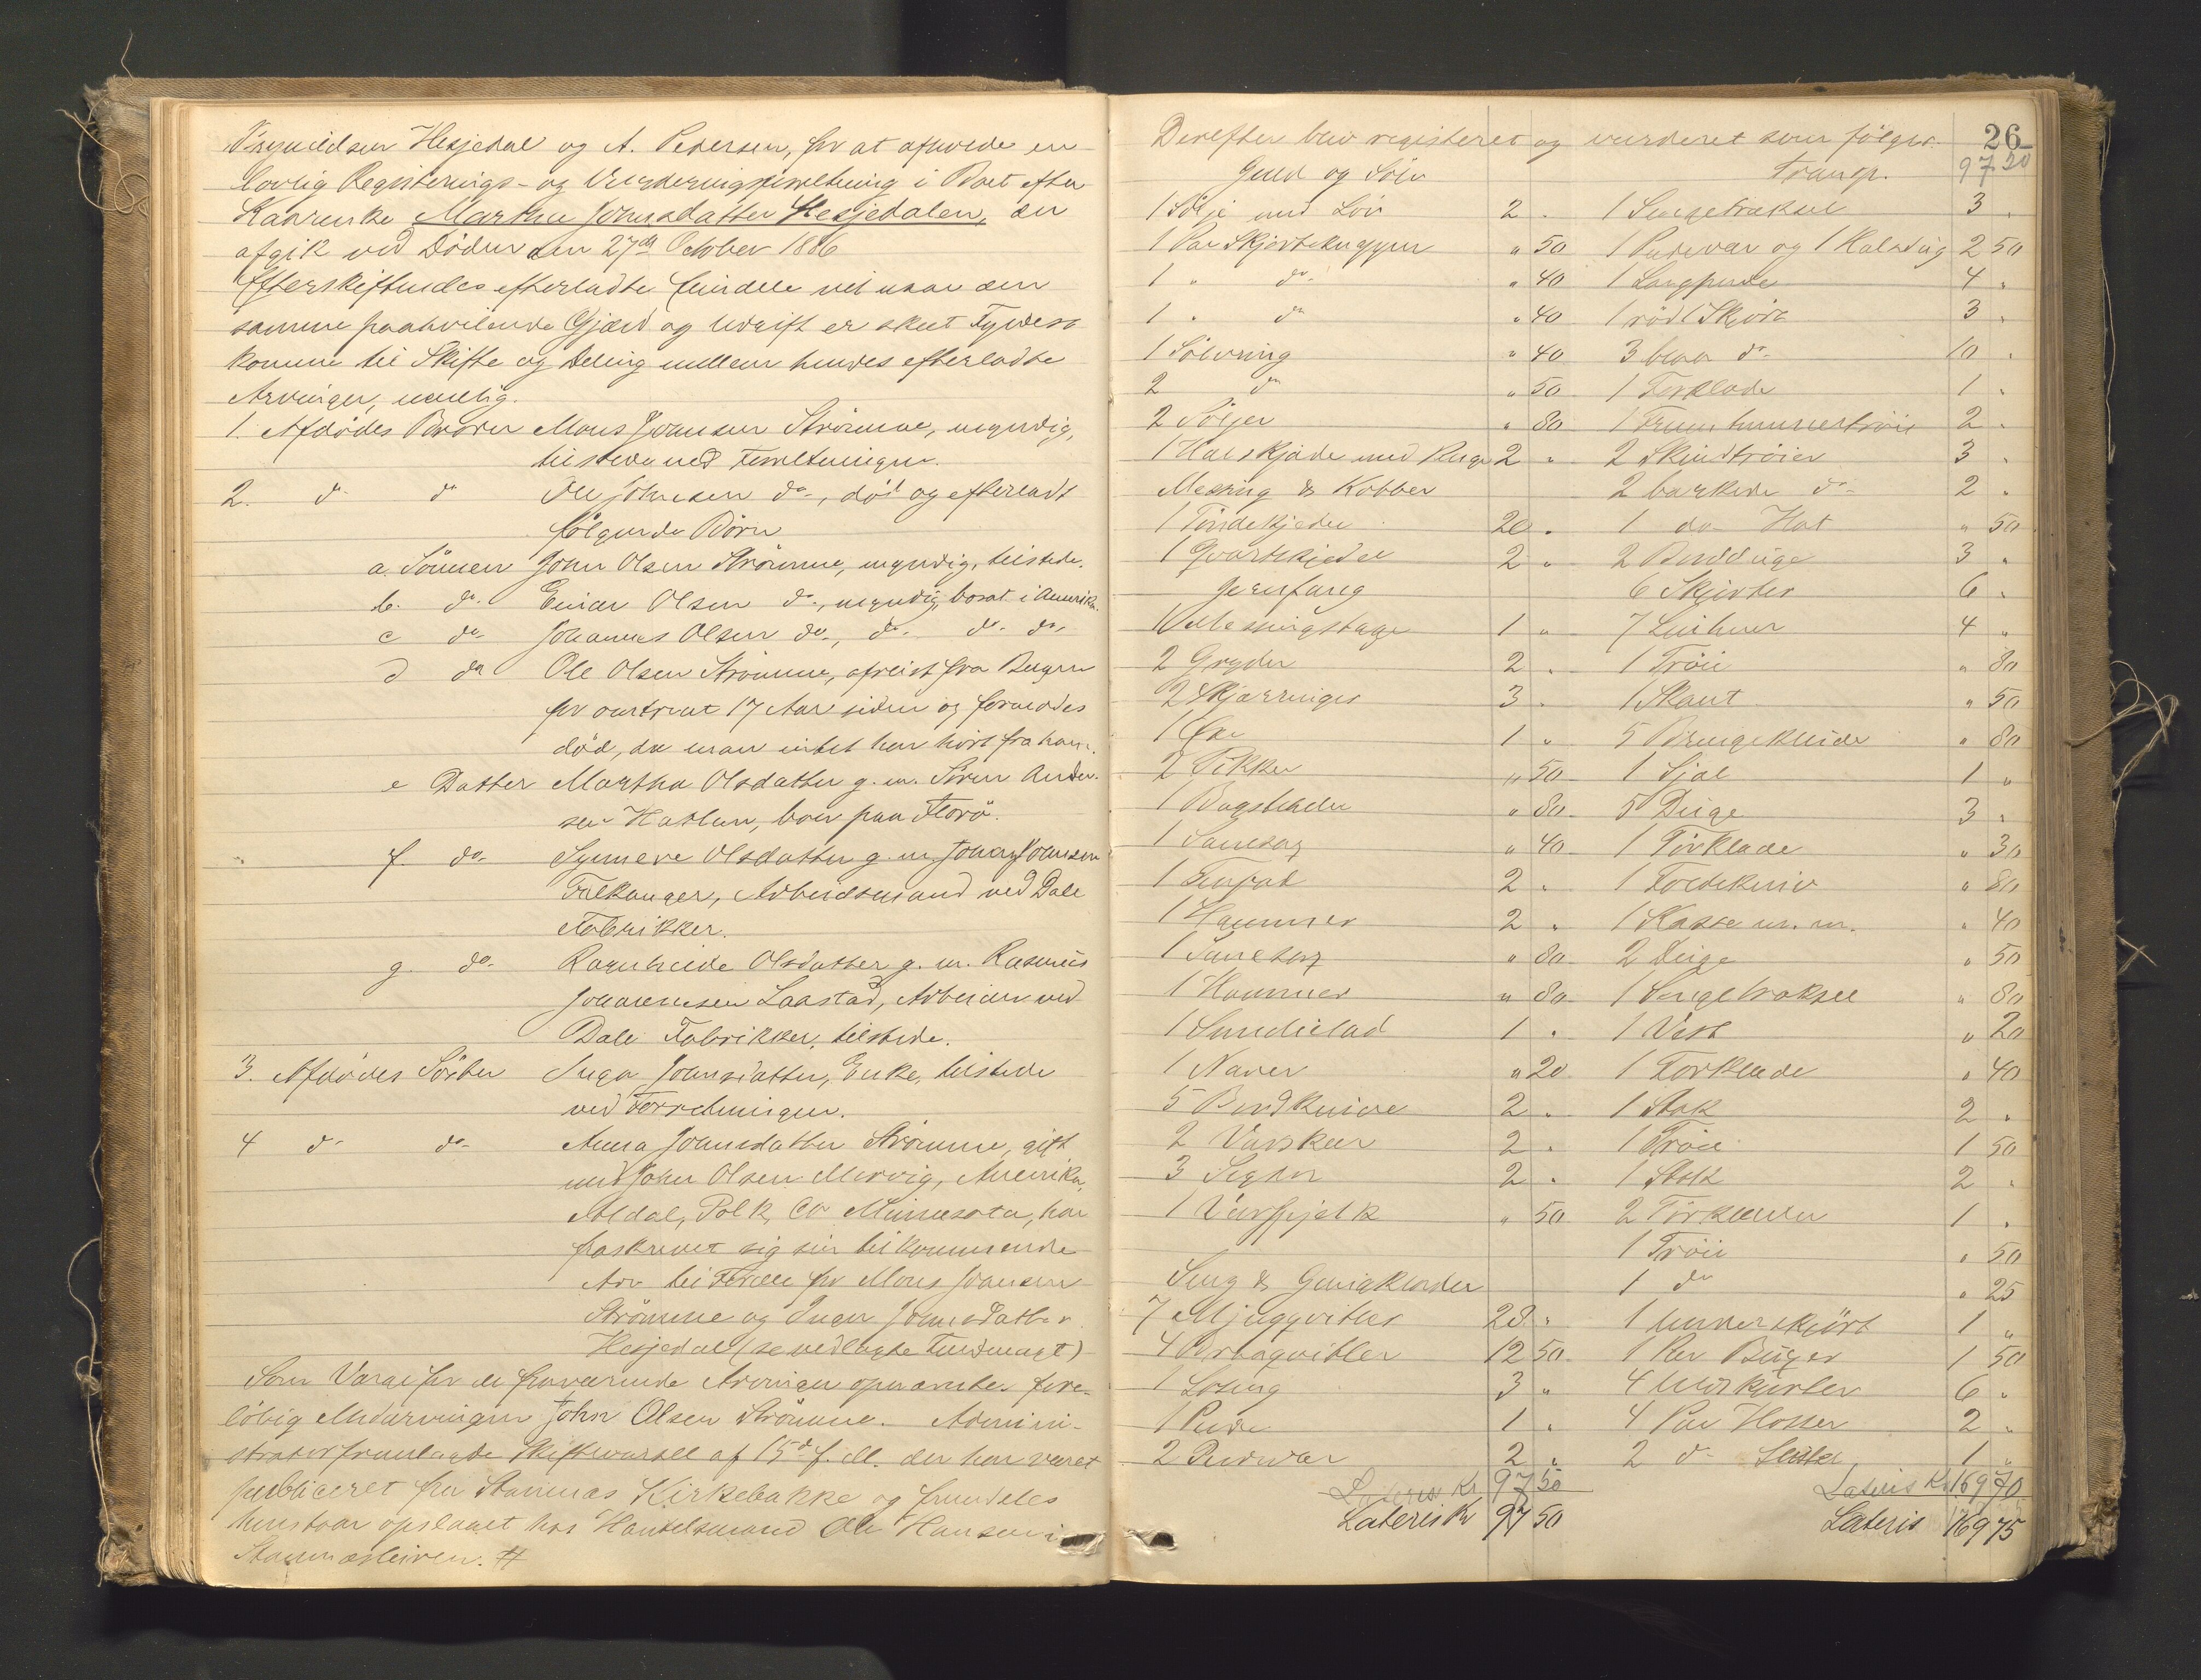 Hesjedal og A. Pedersen, for at afholde en
lovlig Registerings- og Vurderingsforretning i Boet efter
Kaarenke Marthe Johnsdatter Hesjedalen, der
afgik ved Døden den 27de October 1886
Efterskiftendes efterladte Eiendele vil naar den
samme paahvilende Gjæld og Udgift er skeet Fyldest
komme til Skifte og Deling mellem hendes efterladte
Arvinger, nemlig.
1. Afdødes Broder Mons Johnsen Strömme, myndig,
tilstede ved Forretningen.
2. do do Ole Johnsen do, död og efterladt
fölgende Börn
a. Sönnen John Olsen Strömme, myndig, tilstede.
b. do. Einar Olsen do, myndig, bosat i Amerika
c do. Johannes Olsen do, do. do. do.
d do Ole Olsen Strömme, afreist fra Bergen
for omtrent 17 Aar siden og formodes
död, da man intet har hört fra ham.
e Datter Martha Olsdatter g. m. Sören Ander-
sen Hatlen, boer paa Florö.
f. do. Synneve Olsdatter g. m. Johan Johnsen
Falkanger, Arbeidsmand ved Dale
Fabrikker.
g. do. Ragnhilde Olsdatter g. m. Rasmus
Johannesen Laastad, Arbeider ved
Dale Fabrikker, tilstede.
3. Afdødes Söster Inga Johnsdatter, Enke, tilstede
ved Forretningen.
4 do do. Anna Johnsdatter Strömme, gift
med John Olsen Mervig, Amerika,
Aldal, Polk, Co Minnesota, har
fraskrevet sig sin tilkommende
Arv til Fordel for Mons Johnsen
Strömme og Inger Johnsdatter
Hesjedal (se vedlagte Fuldmagt)
Som Værge for de fraværende Arvinger opnævntes fore-
löbig Medarvingen John Olsen Strömme. Admini-
strator fremlagde Skiftevarsel af 15de f. M. der har været
publiceret fra Stamnes Kirkebakke og fremdeles
henstaar opslaaet hos Handelsmand Ole Hansen i
Stamnesleiren. #
26
Derefter blev registeret og vurderet som fölger.
Guld og Sölv
1 Sölje med Löv 2 "
1 Par Skjorteknapper " 50
1 " do " 40
1 " do " 40
1 Sölvring " 40
2 do " 50
2 Söljer " 80
1 Halskjæde med 2 "
Messing & Kobber
1 Töndekjedel 20 "
1 Qvartekjedel 2 "
Jernfang
1 Messingstage 1 "
2 Gryder 2 "
2 3 "
1 Öxe 1 "
2 Pikker " 50
1 " 80
1 " 40
1 2 "
1 Hammer 2 "
1 " 80
1 Hammer " 80
1 Smedielad 1 "
1 Naver " 20
5 Bordknive 2 "
2 2 "
3 Segler 2 "
1 " 50
Seng & Gangklæder
7 28 "
4 12 50
1 3 "
1 Pude 1 "
2 Pudevar 2 "
Lateris Kr 97 50
Lateris Kr 97 50
Transp. 97 20
1 Sengetæksel 3 "
1 Pudevar og 1 2 50
1 Langpude 4 "
1 röd Skjört 3 "
3 blaa do 10 "
1 Forklæde 1 "
1 2 "
2 Skindtröier 3 "
2 barkede do 2 "
1 do Hat " 50
2 Bordduge 3 "
6 Skjorter 6 "
7 4 "
1 Tröie " 80
1 Skaut " 50
5 Bringeklude " 80
1 Sjal 1 "
5 Duge 3 "
1 Forklæde " 30
1 Foldekniv " 80
1 Kasse m. m. " 40
2 Duge " 50
1 Sengetæksel " 80
1 Vest " 20
1 Forklæde " 40
1 Stak 2 "
1 Tröie 1 50
1 Stak 2 "
2 Forklæder 1 "
1 Tröie " 50
1 do " 25
1 Underskjört 1 "
1 Par Buxer 1 50
4 Uldskjorter 6 "
4 Par Hoser 2 "
2 do 1 "
Lateris Kr 169 70
Lateris 169 75